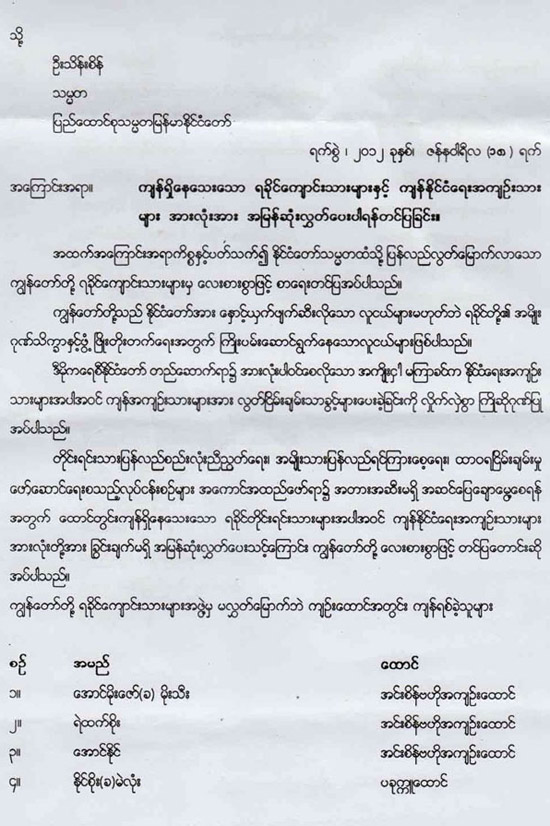 သို့
ဦးသိန်းစိန်
သမ္မတ
ပြည်ထောင်စုသမ္မတမြန်မာနိုင်ငံတော်
ရက်စွဲ ၊ ၂၀၁၂ ခုနှစ်၊ ဇန်နဝါရီလ (၁၈) ရက်
အကြောင်းအရာ။ ကျန်ရှိနေသေးသော ရခိုင်ကျောင်းသားများနှင့် ကျန်နိုင်ငံရေးအကျဉ်းသား
များ အားလုံးအား အမြန်ဆုံးလွှတ်ပေးပါရန်တင်ပြခြင်း။
အထက်အကြောင်းအရာကိစ္စနှင့်ပတ်သက်၍ နိုင်ငံတော်သမ္မတထံသို့ ပြန်လည်လွတ်မြောက်လာသော
ကျွန်တော်တို့ ရခိုင်ကျောင်းသားများမှ လေးစားစွာဖြင့် စာရေးတင်ပြအပ်ပါသည်။
ကျွန်တော်တို့သည် နိုင်ငံတော်အား နှောင့်ယှက်ဖျက်ဆီးလိုသော လူငယ်များမဟုတ်ဘဲ ရခိုင်တို့၏ အမျိုး
ဂုဏ်သိက္ခာနှင့်ဖွံ့ ဖြိုးတိုးတက်ရေးအတွက် ကြိုးပမ်းဆောင်ရွက်နေသောလူငယ်များဖြစ်ပါသည်။
ဒီမိုကရေစီနိုင်ငံတော် တည်ဆောက်ရာ၌ အားလုံးပါဝင်စေလိုသော အကျိုးငှါ မကြာခင်က နိုင်ငံရေးအကျဉ်း
သားများအပါအဝင် ကျန်အကျဉ်းသားများအား လွတ်ငြိမ်းချမ်းသာခွင့်များပေးခဲ့ခြင်းကို လှိုက်လှဲစွာ ကြိုဆိုဂုဏ်ပြု
အပ်ပါသည်။
တိုင်းရင်းသားပြန်လည်စည်းလုံးညီညွတ်ရေး၊ အမျိုးသားပြန်လည်ရင်ကြားစေ့ရေး၊ ထာဝရငြိမ်းချမ်းမှု
ဖော်ဆောင်ရေးစသည့်လုပ်ငန်းစဉ်များ အကောင်အထည်ဖော်ရာ၌ အတားအဆီးမရှိ အဆင်ပြေချောမွေ့စေရန်
အတွက် ထောင်တွင်းကျန်ရှိနေသေးသော ရခိုင်တိုင်းရင်းသားများအပါအဝင် ကျန်နိုင်ငံရေးအကျဉ်းသားများ
အားလုံးတို့အား ခြွင်းချက်မရှိ အမြန်ဆုံးလွှတ်ပေးသင့်ကြောင်း ကျွန်တော်တို့ လေးစားစွာဖြင့် တင်ပြတောင်းဆို
အပ်ပါသည်။
ကျွန်တော်တို့ ရခိုင်ကျောင်းသားများအဖွဲ့မှ မလွတ်မြောက်ဘဲ ကျဉ်းထောင်အတွင်း ကျန်ရစ်ခဲ့သူများ
စဉ် အမည် ထောင်
၁။ အောင်မိုးဇော်(ခ) မိုးသီး အင်းစိန်ဗဟိုအကျဉ်းထောင်
၂။ ရဲထက်စိုး အင်းစိန်ဗဟိုအကျဉ်းထောင်
၃။ အောင်နိုင် အင်းစိန်ဗဟိုအကျဉ်းထောင်
၄။ နိုင်စိုး(ခ)မဲလုံး ပခုက္ကူထောင်